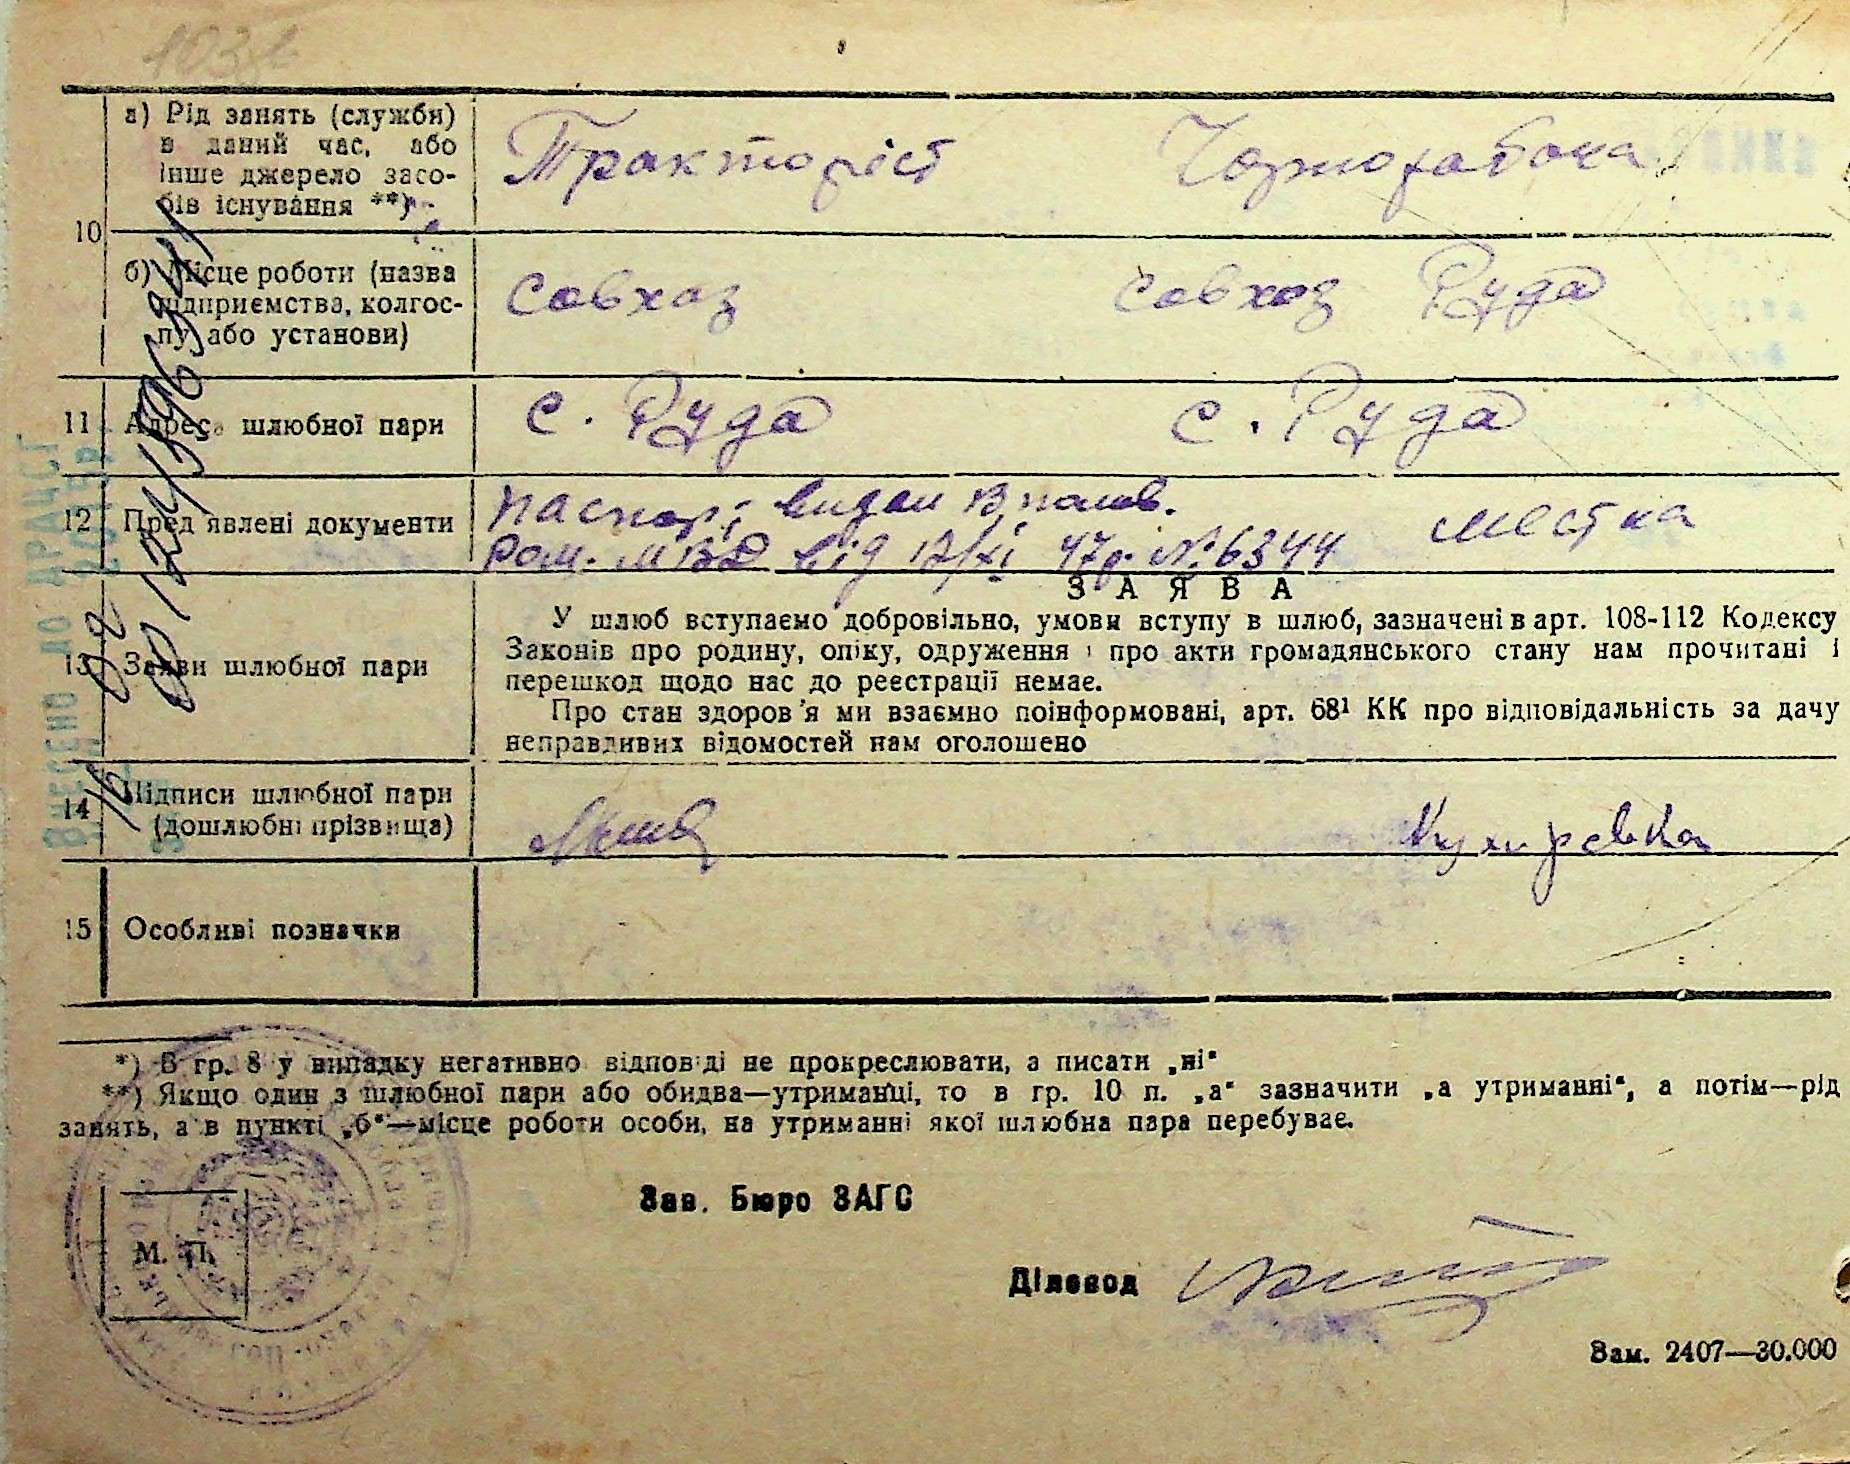 а) Рід занять (служби)
в даний час, або
інше джерело засо-
бів існування **)
Тракторіст
Чорнорабоча
10
б) Місце роботи (назва
підприємства, колгос-
пу, або установи)
Совхоз
Совхоз Руда
11 Адреса шлюбної пари
с. Руда
с. Руда
12 Пред'явлені документи
паспорт видан
від 12/XI 47р. № 6344
местка
З А Я В А
13 Заяви шлюбної пари
У шлюб вступаємо добровільно, умови вступу в шлюб, зазначені в арт. 108-112 Кодексу
Законів про родину, опіку, одруження і про акти громадянського стану нам прочитані і
перешкод щодо нас до реєстрації немає.
Про стан здоров'я ми взаємно поінформовані, арт. 68¹ КК про відповідальність за дачу
неправдивих відомостей нам оголошено
14 Підписи шлюбної пари
(дошлюбні прізвища)
15 Особливі позначки
*) В гр. 8 у випадку негативно відповіді не прокреслювати, а писати „ні“
**) Якщо один з шлюбної пари або обидва—утриманці, то в гр. 10 п. „а“ зазначити „а утриманні“, а потім—рід
занять, а в пункті „б“—місце роботи особи, на утриманні якої шлюбна пара перебуває.
Зав. Бюро ЗАГС
М. П.
Діловод
Зам. 2407—30.000
Внесено до ДРАЦСГ